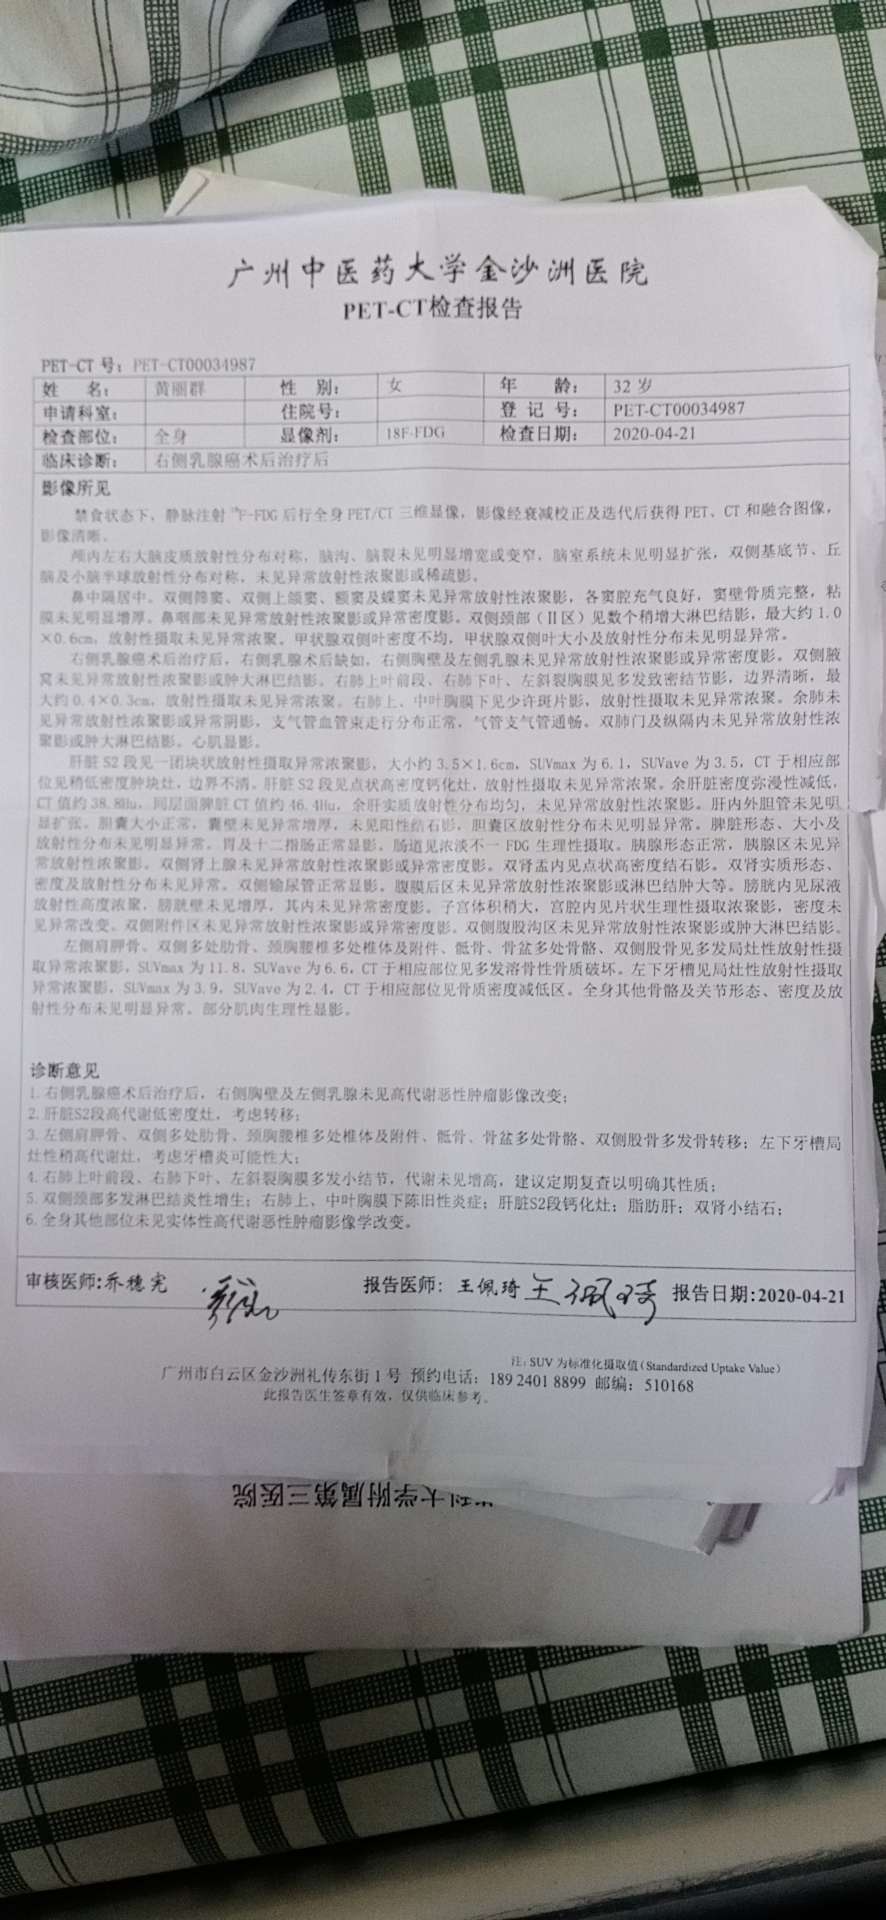 广州中医药大学金沙洲医院
PET-CT检查报告
PET-CT 号: PET-CT00034987
姓 名: 黄丽群 性 别: 女 年 龄: 32 岁
申请科室: 住院号: 登 记 号: PET-CT00034987
检查部位: 全身 显像剂: 18F-FDG 检查日期: 2020-04-21
临床诊断: 右侧乳腺癌术后治疗后
影像所见
禁食状态下，静脉注射¹⁸F-FDG 后行全身 PET/CT 三维显像，影像经衰减校正及迭代后获得 PET、CT 和融合图像，
影像清晰。
颅内左右大脑皮质放射性分布对称，脑沟、脑裂未见明显增宽或变窄，脑室系统未见明显扩张，双侧基底节、丘
脑及小脑半球放射性分布对称，未见异常放射性浓聚影或稀疏影。
鼻中隔居中。双侧筛窦、双侧上颌窦、额窦及蝶窦未见异常放射性浓聚影，各窦腔充气良好，窦壁骨质完整，粘
膜未见明显增厚。鼻咽部未见异常放射性浓聚影或异常密度影。双侧颈部（Ⅱ区）见数个稍增大淋巴结影，最大约 1.0
×0.6cm，放射性摄取未见异常浓聚。甲状腺双侧叶密度不均，甲状腺双侧叶大小及放射性分布未见明显异常。
右侧乳腺癌术后治疗后，右侧乳腺术后缺如，右侧胸壁及左侧乳腺未见异常放射性浓聚影或异常密度影。双侧腋
窝未见异常放射性浓聚影或肿大淋巴结影。右肺上叶前段、右肺下叶、左斜裂胸膜见多发致密结节影，边界清晰，最
大约 0.4×0.3cm，放射性摄取未见异常浓聚。右肺上、中叶胸膜下见少许斑片影，放射性摄取未见异常浓聚。余肺未
见异常放射性浓聚影或异常阴影，支气管血管束走行分布正常，气管支气管通畅。双肺门及纵隔内未见异常放射性浓
聚影或肿大淋巴结影。心肌显影。
肝脏 S2 段见一团块状放射性摄取异常浓聚影，大小约 3.5×1.6cm，SUVmax 为 6.1，SUVave 为 3.5，CT 于相应部
位见稍低密度肿块灶，边界不清。肝脏 S2 段见点状高密度钙化灶，放射性摄取未见异常浓聚。余肝脏密度弥漫性减低，
CT 值约 38.8Hu，同层面脾脏 CT 值约 46.4Hu，余肝实质放射性分布均匀，未见异常放射性浓聚影。肝内外胆管未见明
显扩张。胆囊大小正常，囊壁未见异常增厚，未见阳性结石影，胆囊区放射性分布未见明显异常。脾脏形态、大小及
放射性分布未见明显异常。胃及十二指肠正常显影。肠道见浓淡不一 FDG 生理性摄取。胰腺形态正常，胰腺区未见异
常放射性浓聚影。双侧肾上腺未见异常放射性浓聚影或异常密度影。双肾盂内见点状高密度结石影。双肾实质形态、
密度及放射性分布未见异常。双侧输尿管正常显影。腹膜后区未见异常放射性浓聚影或淋巴结肿大等。膀胱内见尿液
放射性高度浓聚，膀胱壁未见增厚，其内未见异常密度影。子宫体积稍大，宫腔内见片状生理性摄取浓聚影，密度未
见异常改变。双侧附件区未见异常放射性浓聚影或异常密度影。双侧腹股沟区未见异常放射性浓聚影或肿大淋巴结影。
左侧肩胛骨、双侧多处肋骨、颈胸腰椎多处椎体及附件、骶骨、骨盆多处骨骼、双侧股骨见多发局灶性放射性摄
取异常浓聚影，SUVmax 为 11.8，SUVave 为 6.6，CT 于相应部位见多发溶骨性骨质破坏。左下牙槽见局灶性放射性摄取
异常浓聚影，SUVmax 为 3.9，SUVave 为 2.4，CT 于相应部位见骨质密度减低区。全身其他骨骼及关节形态、密度及放
射性分布未见明显异常。部分肌肉生理性显影。
诊断意见
1.右侧乳腺癌术后治疗后，右侧胸壁及左侧乳腺未见高代谢恶性肿瘤影像改变；
2.肝脏S2段高代谢低密度灶，考虑转移；
3.左侧肩胛骨、双侧多处肋骨、颈胸腰椎多处椎体及附件、骶骨、骨盆多处骨骼、双侧股骨多发骨转移；左下牙槽局
灶性稍高代谢灶，考虑牙槽炎可能性大；
4.右肺上叶前段、右肺下叶、左斜裂胸膜多发小结节，代谢未见增高，建议定期复查以明确其性质；
5.双侧颈部多发淋巴结炎性增生；右肺上、中叶胸膜下陈旧性炎症；肝脏S2段钙化灶；脂肪肝；双肾小结石；
6.全身其他部位未见实体性高代谢恶性肿瘤影像学改变。
审核医师:乔穗宪 报告医师: 王佩琦 王佩琦 报告日期:2020-04-21
注: SUV 为标准化摄取值（Standardized Uptake Value）
广州市白云区金沙洲礼传东街 1 号 预约电话: 189 2401 8899 邮编: 510168
此报告医生签章有效，仅供临床参考。
科大学附属第三医院